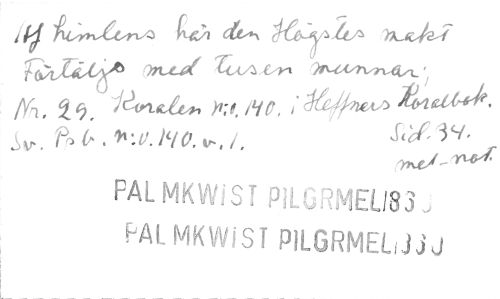 Af himlens här den Högstes makt
Förtälje med tusen munnar;
Nr. 29. Koralen n:o. 140. i Heffners Koralbok.
Sv. Psb. n:o. 140. v. 1. Sid. 34.
met-not.
PALMKWiST PILGRMEL1830
PALMKWiST PILGRMEL1330